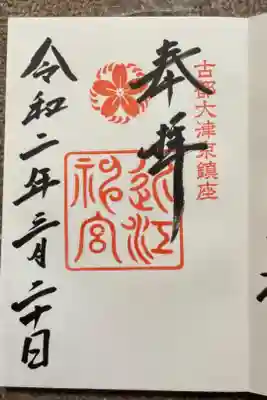 古都大津京鎮座
奉拝
近江神宮
令和二年三月二十日